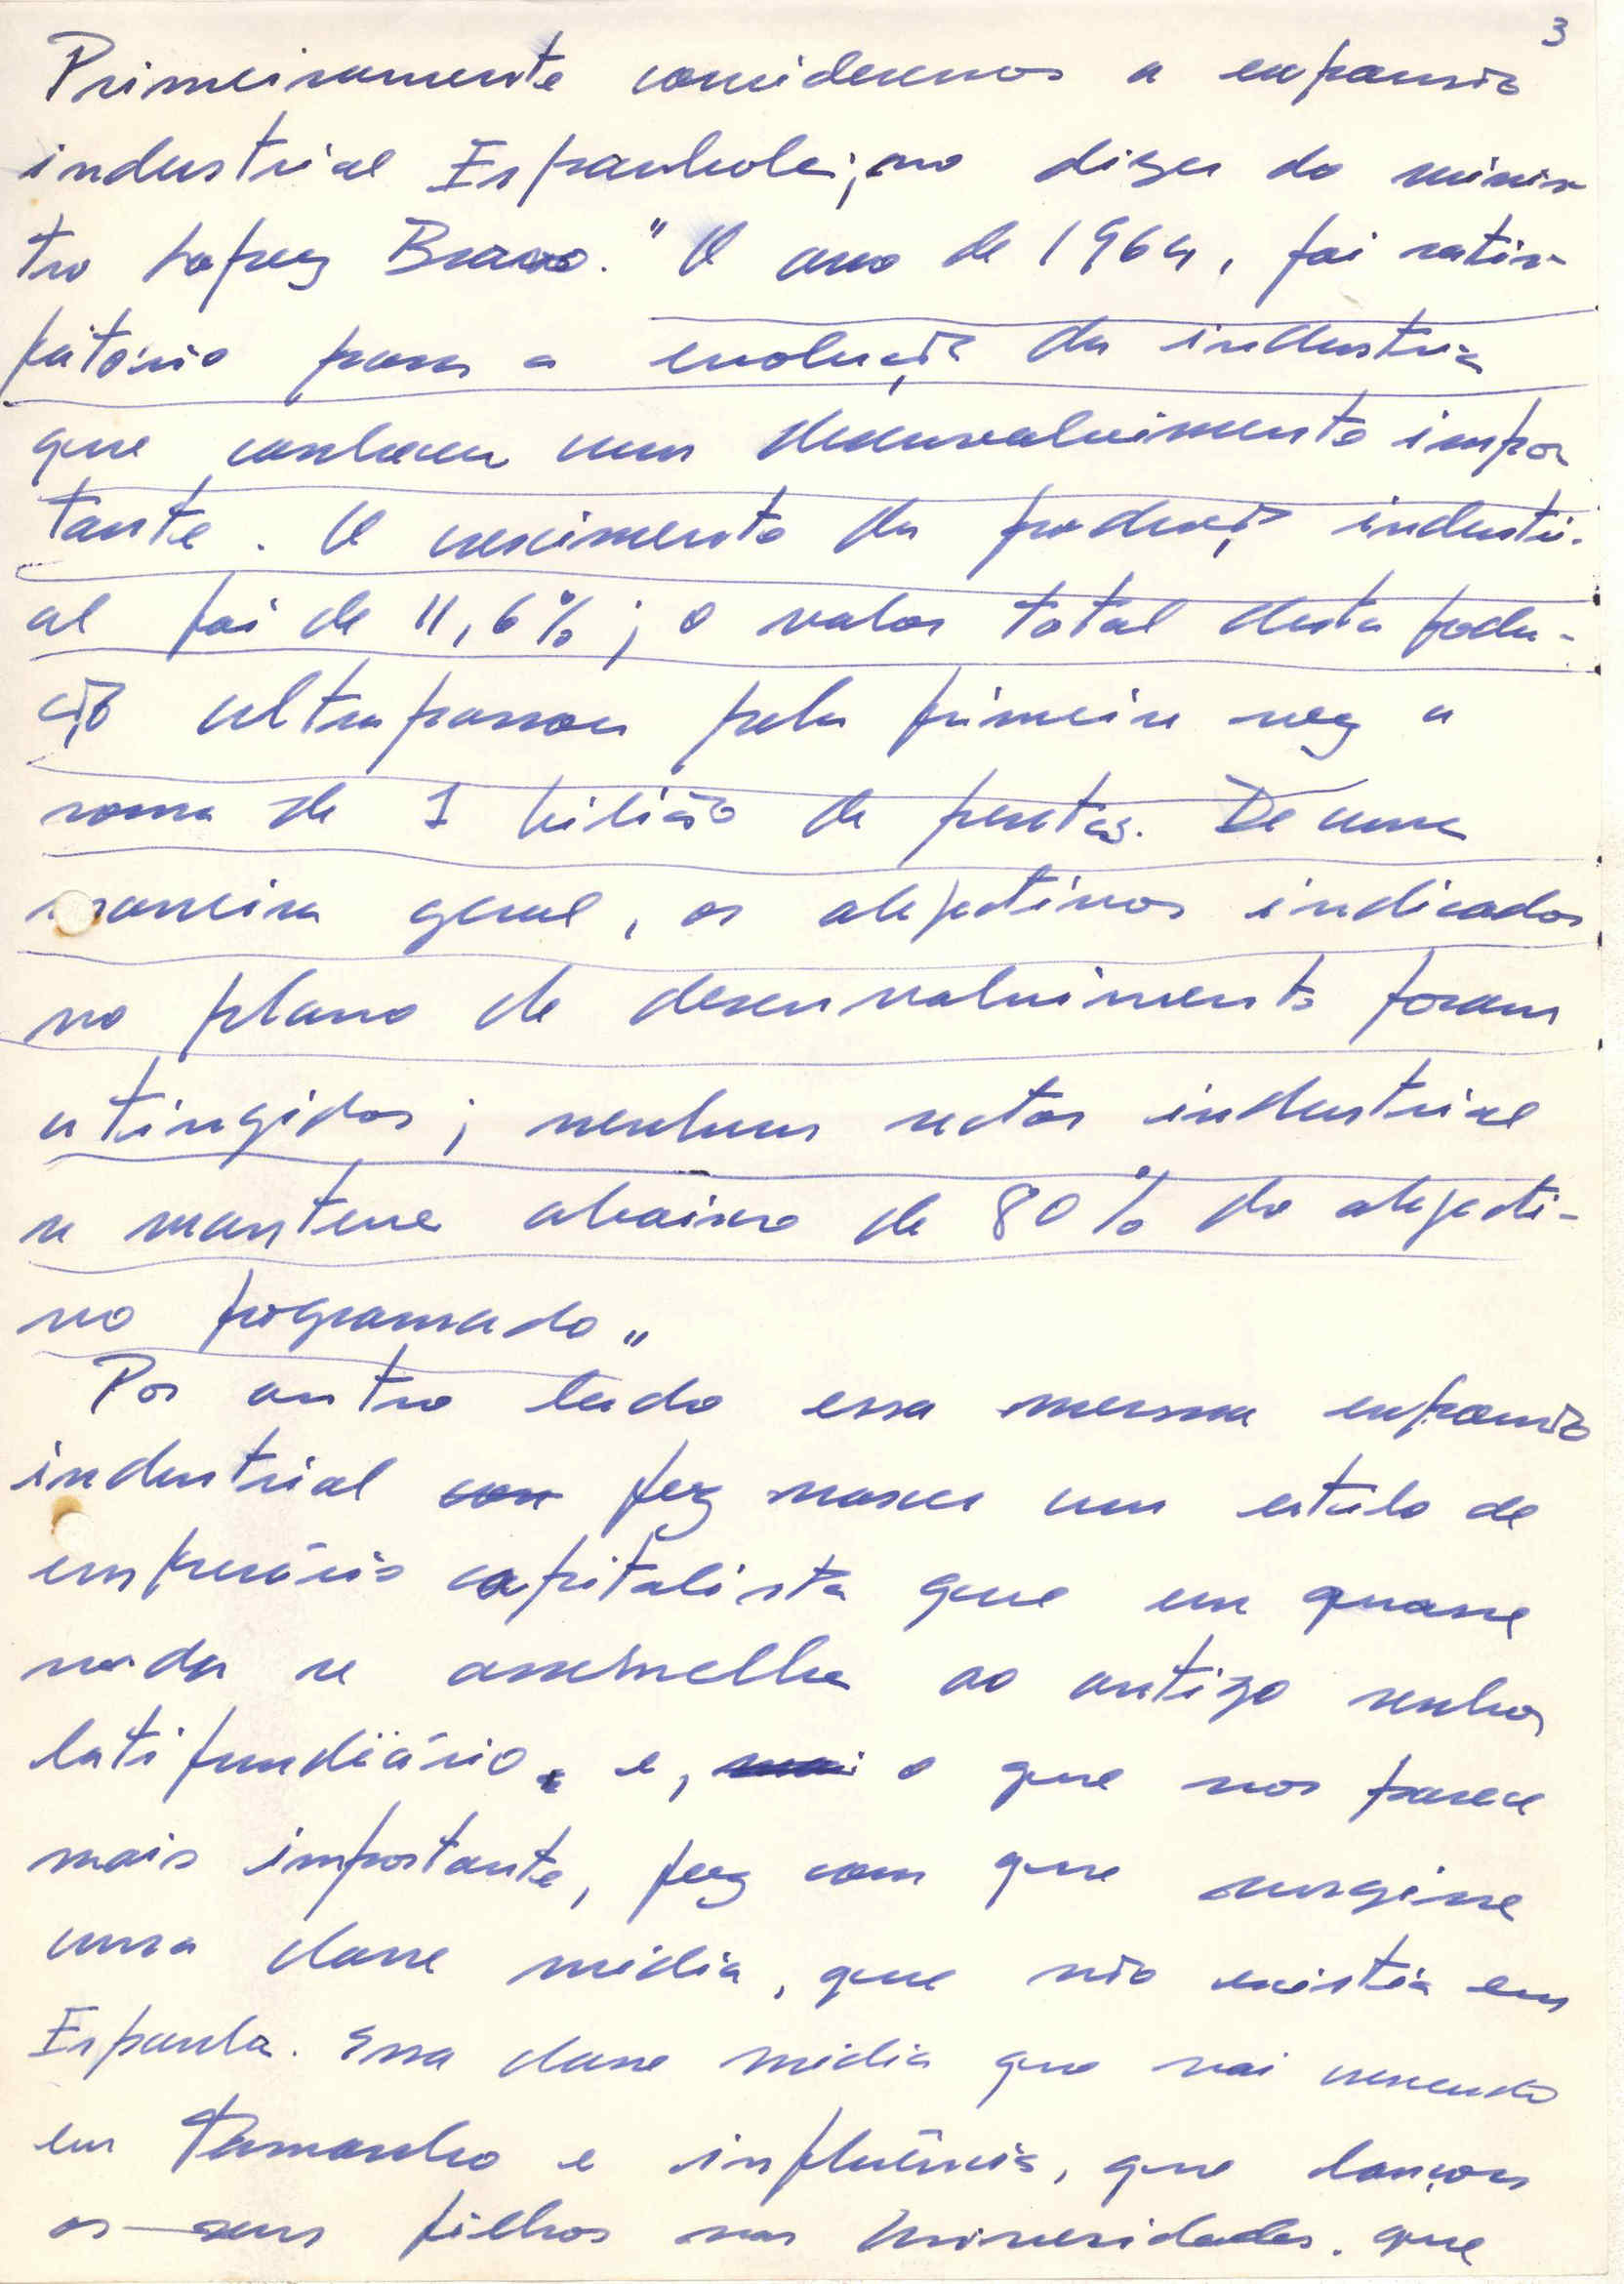 3
Primeiramente consideremos a expansão
industrial Espanhola; no dizer do minis-
tro Lopez Bravo. "O ano de 1964, foi satis-
fatório para a evolução da industria
que conheceu um desenvolvimento impor
tante. O crescimento da produção industri-
al foi de 11,6%; o valor total desta produ-
ção ultrapassou pela primeira vez a
soma de 1 bilião de pesetas. De uma
maneira geral, os objectivos indicados
no plano de desenvolvimento foram
atingidos; nenhum sector industrial
se manteve abaixo de 80% do objecti-
vo programado"
Por outro lado essa mesma expansão
industrial con fez nascer um estilo de
empresário capitalista que em quase
nada se assemelha ao antigo senhor
latifundiário, e, mai o que nos parece
mais importante, fez com que surgisse
uma classe média, que não existia em
Espanha. Essa classe média que vai crescendo
em tamanho e influência, que lançou
os seus filhos nas Universidades. que